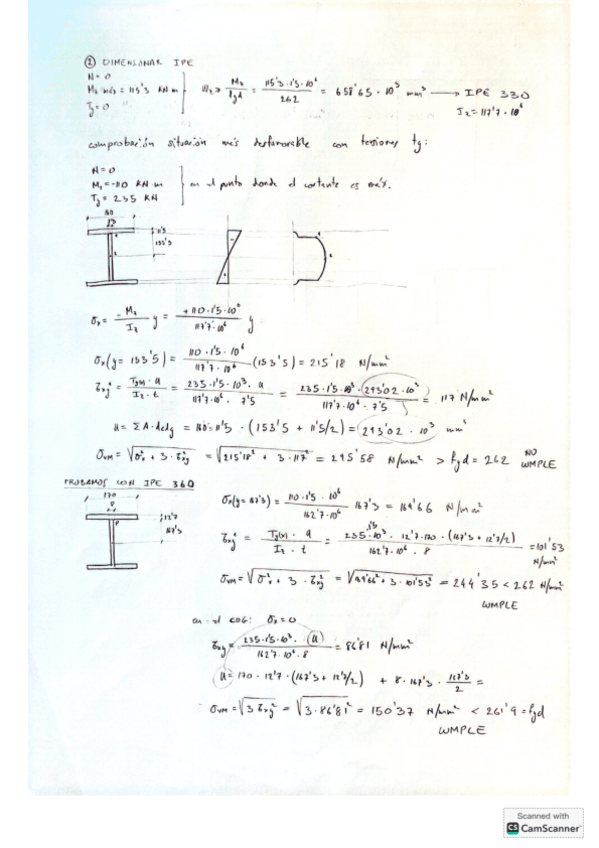 ② DIMENSIONAR IPE
N = 0
Mz máx = 115'3 KN·m
Ty = 0
Wz ≥ Mz / fyd = 115'3 · 1'5 · 10⁶ / 262 = 658'65 · 10³ mm³ → IPE 330
Iz = 117'7 · 10⁶
comprobación situación más desfavorable con tensiones tg:
N = 0
Mz = -110 KN·m
Ty = 235 KN
en el punto donde el cortante es máx.
160
11'5
153'5
σx = - Mz / Iz y = +110 · 1'5 · 10⁶ / 117'7 · 10⁶ y
σx (y = 153'5) = 110 · 1'5 · 10⁶ / 117'7 · 10⁶ (153'5) = 215'18 N/mm²
τxy = Ty(x) · u / Iz · t = 235 · 1'5 · 10³ · u / 117'7 · 10⁶ · 7'5 = 235 · 1'5 · 10³ · (293'02 · 10³) / 117'7 · 10⁶ · 7'5 = 117 N/mm²
u = ΣA · dcdg = 160 · 11'5 · (153'5 + 11'5/2) = 293'02 · 10³ mm³
σVM = √σx² + 3 · τxy² = √215'18² + 3 · 117² = 295'58 N/mm² > fyd = 262 NO CUMPLE
PROBAMOS CON IPE 360
170
8
12'7
167'3
σx (y = 167'3) = 110 · 1'5 · 10⁶ / 162'7 · 10⁶ 167'3 = 169'66 N/mm²
τxy = Ty(x) · u / Iz · t = 235 · 1'5 · 10³ · 12'7 · 170 · (167'3 + 12'7/2) / 162'7 · 10⁶ · 8 = 101'53 N/mm²
σVM = √σx² + 3 · τxy² = √169'66² + 3 · 101'53² = 244'35 < 262 N/mm²
CUMPLE
en el CDG: σx = 0
τxy = 235 · 1'5 · 10³ · (u) / 162'7 · 10⁶ · 8 = 86'81 N/mm²
u = 170 · 12'7 · (167'3 + 12'7/2) + 8 · 167'3 · 167'3 / 2 =
σVM = √3 τxy² = √3 · 86'81² = 150'37 N/mm² < 261'9 = fyd
CUMPLE
Scanned with
CS CamScanner